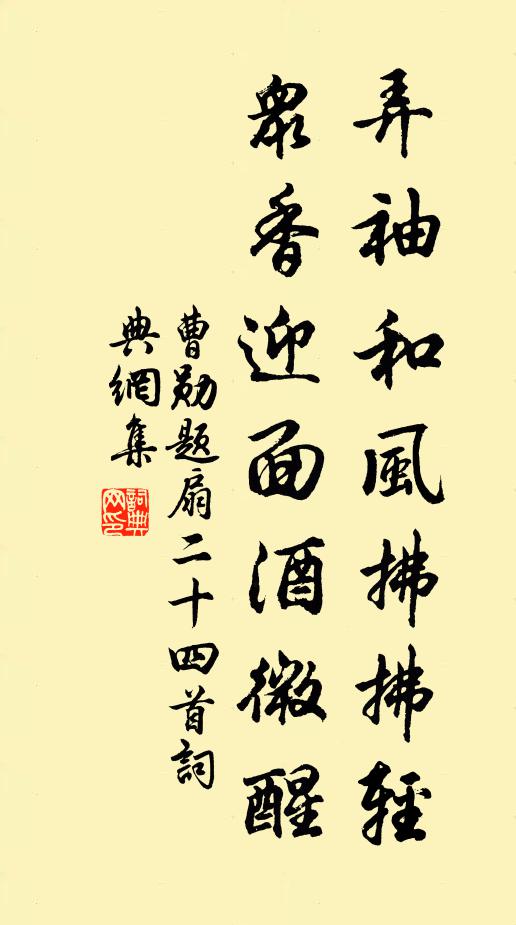 弄袖和風拂拂輕
眾香迎面酒微醒
曹勛題扇二十四首詞
典網集
詞典
网印